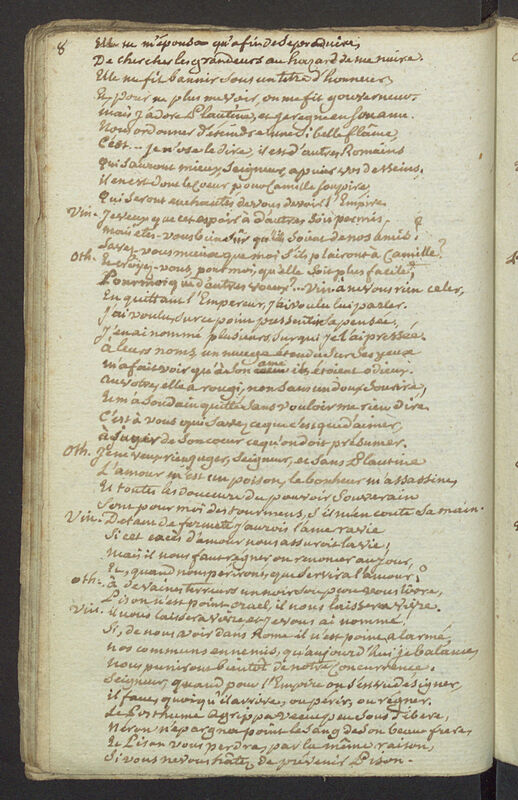 8 Elle ne m'épousa qu'afin de se produire,
De chercher les grandeurs au hazard de me nuire.
Elle me fit bannir sous un titre d'honneur,
Et, pour ne plus me voir, on me fit gouverneur.
mais j'adore Plautine, et je regne en son ame.
Nous ordonner d'éteindre une si belle flâme,
C'est... je n'ose le dire, il est d'autres Romains
qui sauront mieux, Seigneur, apuier vos desseins.
il en est dont le coeur pour Camille soupire,
Qui seront enchantés de vous devoir l'Empire.
Vin. Je veux que cet espoir à d'autres soit permis,
Mais êtes-vous bien sûr qu'ils soient de nos amis?
Savez-vous mieux que moi s'ils plairont à Camille?
Oth. Et croyez-vous, pour moi, qu'elle soit plus facile?
Pour moi que d'autres voeux... Vin. à ne vous rien celer,
En quittant l'Empereur, j'ai voulu lui parler.
J'ai voulu, sur ce point pressentir sa pensée,
J'en ai nommé plusieurs sur qui je l'ai pressée.
à leurs noms, un nuage étendu sur ses yeux
m'a fait voir qu'à son ame ils étoient odieux.
au votre, elle à rougi, non sans un doux sourire,
Et m'à soudain quitté sans vouloir me rien dire
C'est à vous qui savez ce que c'est que d'aimer,
à juger de son coeur ce qu'on doit présumer.
Oth. Je ne veux rien juger, Seigneur, et sans Plautine
L'amour m'est un poison, le bonheur m'assassine,
Et toutes les douceurs du pouvoir Souverain
Sont pour moi des tourmens, s'il m'en coute sa main.
Vin. De tant de fermeté j'aurois l'âme ravie
Si cet excès d'amour nous assuroit la vie;
mais il nous faut regner ou renoncer au jour,
Et, quand nous perirons, que servira l'amour?
Oth. à de vaines terreurs un noir soupçon vous livre,
Pison n'est point cruel, il nous laissera vivre.
Vin. il nous laissera vivre et je vous ai nommé!
Si, de nous voir dans Rome il n'est point alarmé,
nos communs ennemis, qu'aujourd'hui je balance,
Nous puniront bientôt de notre concurrence.
Seigneur, quand pour l'Empire on s'entre désigner,
il faut, quoiqu'il arrive, ou périr, ou régner.
Le Posthume Agrippa vecut peu sous Tibere,
Néron n'épargna point le sang de son beau frere,
Et Pison vous perdra, par la même raison,
Si vous ne vous hâtez de prévenir Pison.